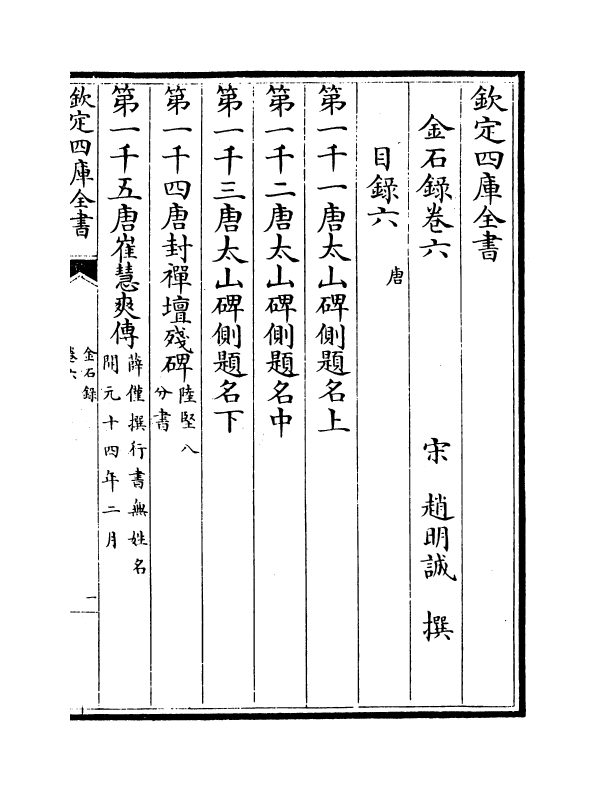 欽定四庫全書
金石錄卷六
宋 趙明誠 撰
目錄六 唐
第一千一唐太山碑側題名上
第一千二唐太山碑側題名中
第一千三唐太山碑側題名下
第一千四唐封禪壇殘碑 陸堅八
分書
第一千五唐崔慧爽傳 薛僅撰行書無姓名
開元十四年二月
欽定四庫全書
金石錄
卷六
一